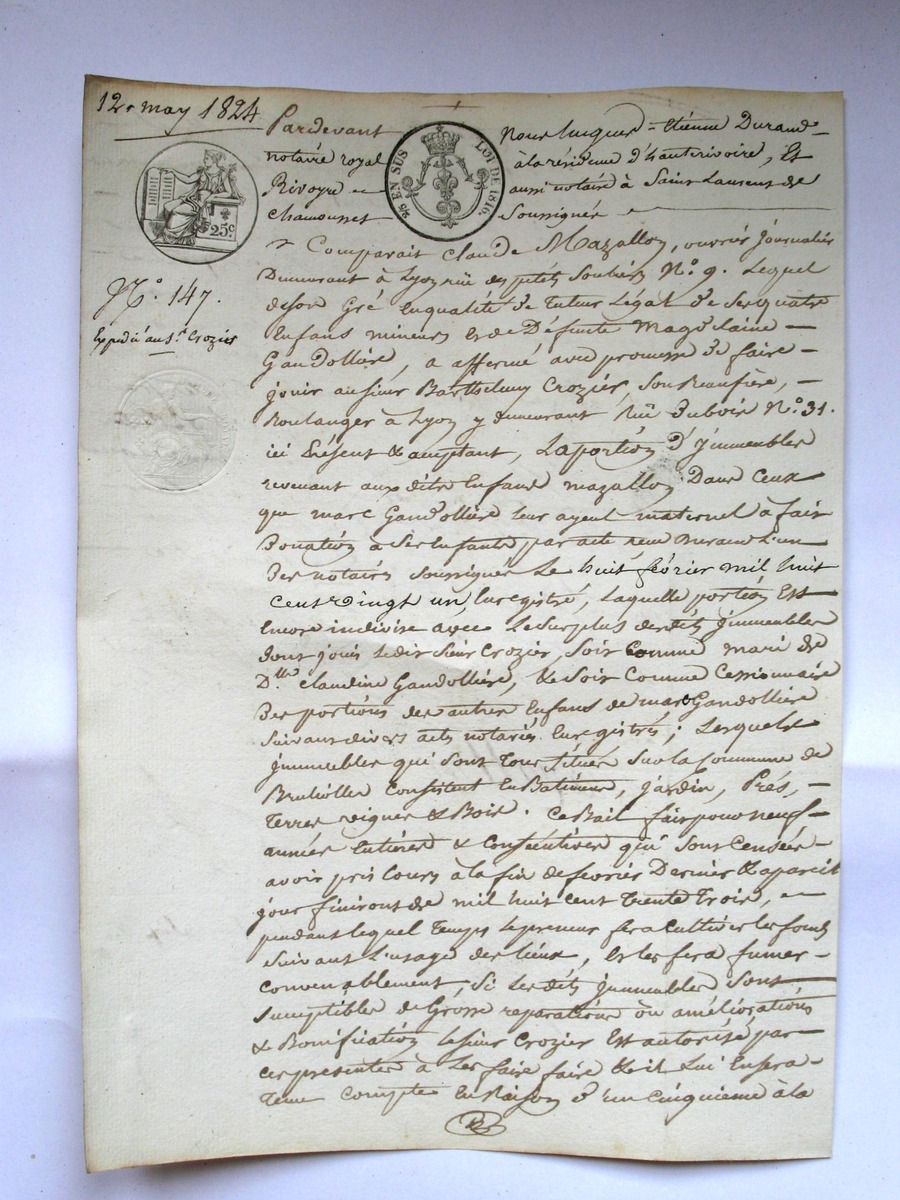 12e may 1824
Pardevant Nous Jacques = Etienne Durand
notaire royal à la résidence d'hauterivoire, Et
Rivoyre = aussi notaire à Saint Laurent de
Chamousset Soussignés
25 EN SUS LOI DE 1816.
25c.
No. 147.
Expédié au Sr. Crozier
Comparait Claude Mazallon, ouvrier Journalier
Demeurant à Lyon rüe des petits Souliers No. 9. Lequel
de son Gré En qualité de Tuteur Légal de Ses quatre
Enfans mineurs et de Défunte Magdelaine
Gandollière, a affermé avec promesse de faire
jouir au sieur Barthelemy Crozier, Son Beaufrère,
Boulanger à Lyon y demeurant Rüe Dubois No. 31.
ici Présent & acceptant, La portion d'Jmmeubles
revenant aux dits Enfans mazallon Dans Ceux
que marc Gandollière leur ayeul maternel a fait
Donation à Ses Enfants par acte reçu Durand L'un
Des notaires Soussignés Le huit février mil huit
Cent Vingt un, Enregistré, Laquelle portion Est
Encore indivise avec Le Surplus desdits Jmmeubles
dont jouit Ledit Sieur Crozier, Soit Comme mari de
Dlle Claudine Gandollière, & Soit Comme Cessionnaire
Des portions des autres Enfans de marc Gandollière
Suivant divers acts notariés Enregistrés; Lesquels
Jmmeubles qui Sont Tous Situés Sur la Commune de
Brullolles Consistent En Batimens, Jardin, Prés,
Terres vignes & Bois. Ce Bail fait pour neuf
années Entières & Consécutives qui Sont Censées
avoir pris Cours à la fin de février Dernier & à pareil
jour finiront de mil huit cent Trente Trois,
pendant lequel Temps Le preneur fera Cultiver les fonds
Suivant L'usage des Lieux, Et les fera fumer
Convenablement, Si Lesdits Jmmeubles Sont
Susceptibles de Grosse reparations ou améliorations
& Bonification le sieur Crozier Est autorisé par
ces présentes à Les faire faire & il Lui En Sera
Tenu Compte En Raison d'un Cinquieme à la